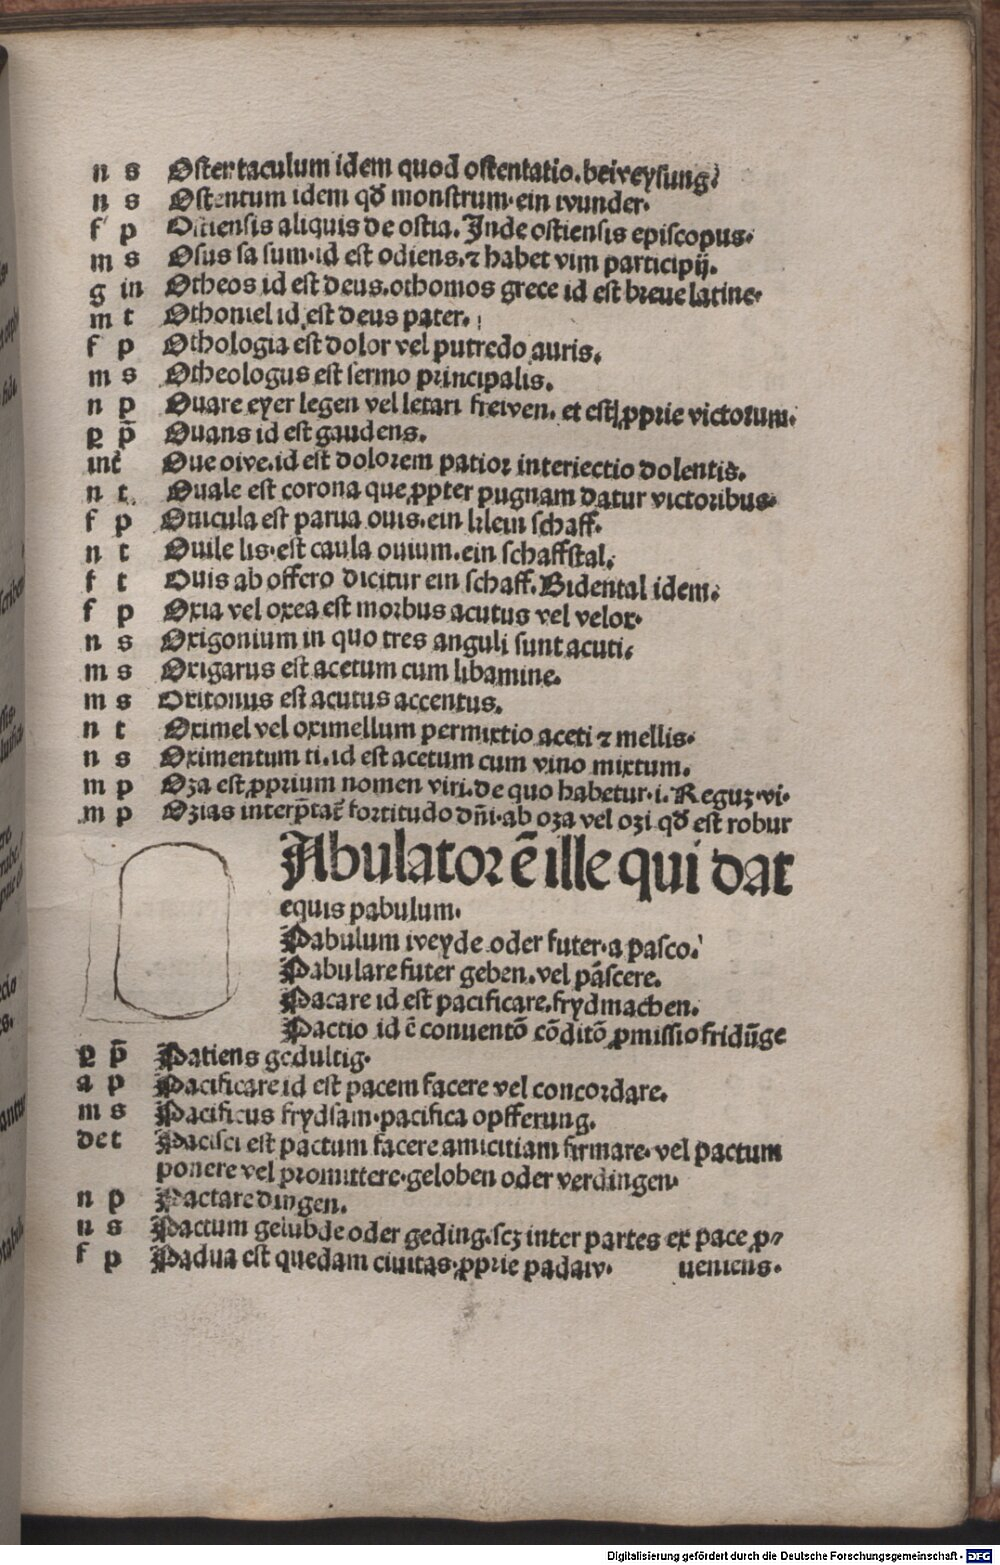 n s Ostentaculum idem quod ostentatio. beweysung.
n s Ostentum idem qđ monstrum. ein wunder.
f p Ostiensis aliquis de ostia. Inde ostiensis episcopus.
m s Osus sa sum. id est odiens. ⁊ habet vim participij.
g in Otheos id est deus. othomos grece id est breue latine.
m t Othoniel id est deus pater.
f p Othologia est dolor vel putredo auris.
m s Otheologus est sermo principalis.
n p Ouare eyer legen vel letari frewen. et est ꝓprie victorum.
ꝑ p̄ Ouans id est gaudens.
int̄ Oue oive. id est dolorem patior interiectio dolentis.
n t Ouale est corona que ꝓpter pugnam datur victoribus.
f p Ouicula est parua ouis. ein klein schaff.
n t Ouile lis. est caula ouium. ein schaffstal.
f t Ouis ab offero dicitur ein schaff. Bidental idem.
f p Oxia vel oxea est morbus acutus vel velox.
n s Oxigonium in quo tres anguli sunt acuti.
m s Oxigarus est acetum cum libamine.
m s Oxitonus est acutus accentus.
n t Oximel vel oximellum permixtio aceti ⁊ mellis.
n s Oximentum ti. id est acetum cum vino mixtum.
m p Oza est ꝓprium nomen viri. de quo habetur. i. Reguꝫ. vi.
m p Ozias interp̄tat̄ fortitudo dn̄i. ab oza vel ozi qđ est robur
Abulator ē ille qui dat
equis pabulum.
Pabulum weyde oder futer. a pasco.
Pabulare futer geben. vel pāscere.
Pacare id est pacificare. frydmachen.
Pactio id ē conuentō cōditō ꝓmissio fridūge
ꝑ p̄ Patiens gedultig.
a p Pacificare id est pacem facere vel concordare.
m s Pacificus frydsam. pacifica opfferung.
de t Pacisci est pactum facere amicitiam firmare. vel pactum
ponere vel promittere. geloben oder verdingen.
n p Pactare dingen.
n s Pactum gelubde oder geding. scꝫ inter partes ex pace ꝓ⸗
f p Padua est quedam ciuitas. ꝓprie padaw. ueniens.
Digitalisierung gefördert durch die Deutsche Forschungsgemeinschaft - DFG